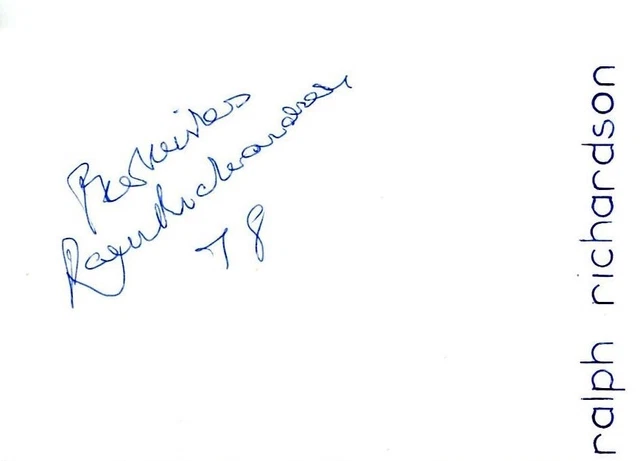 Best Wishes
Ralph Richardson
78
ralph richardson